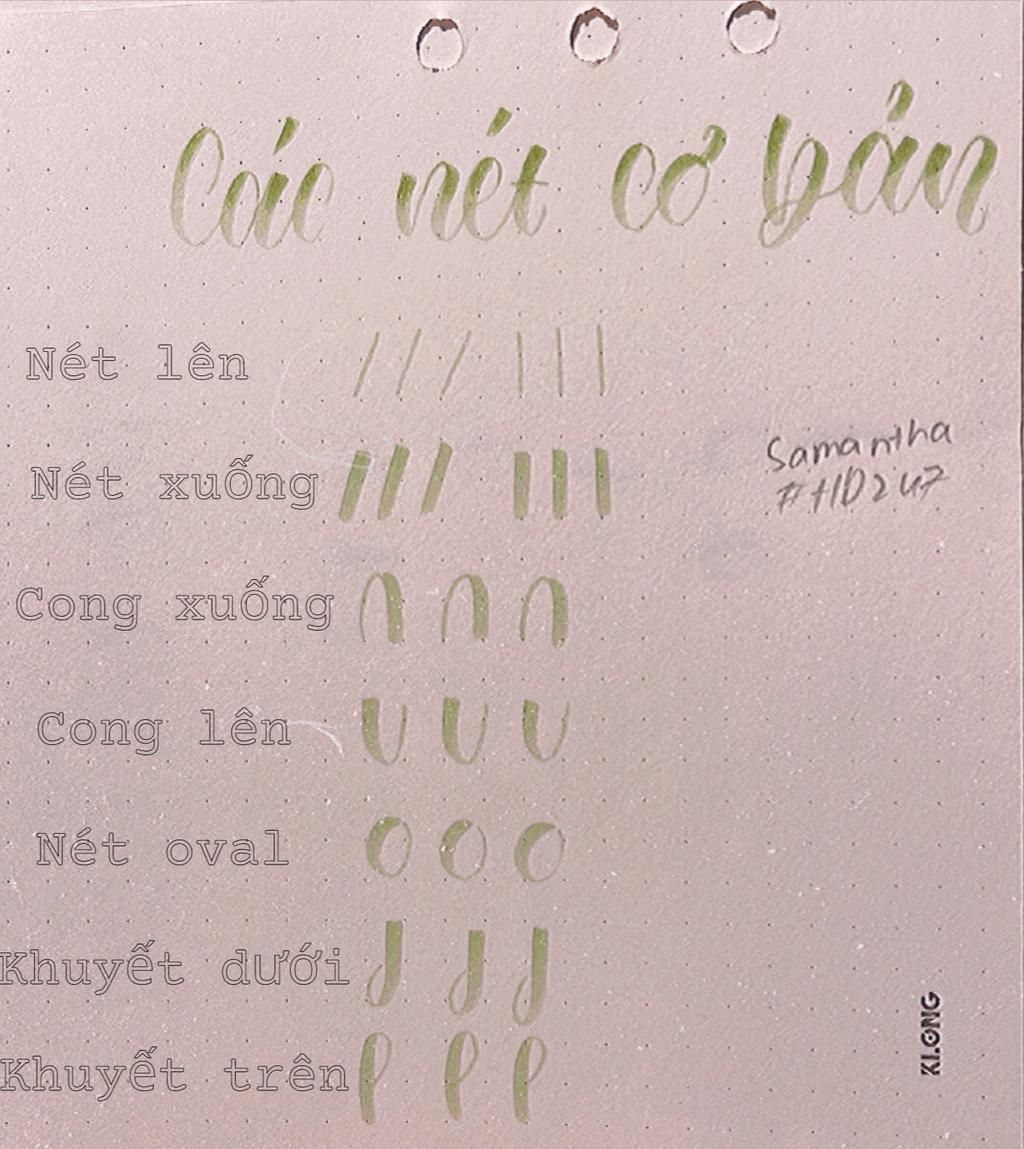 Các nét cơ bản
Nét lên
Nét xuống
Samantha
#HD247
Cong xuống
Cong lên
Nét oval
Khuyết dưới
Khuyết trên
KLONG